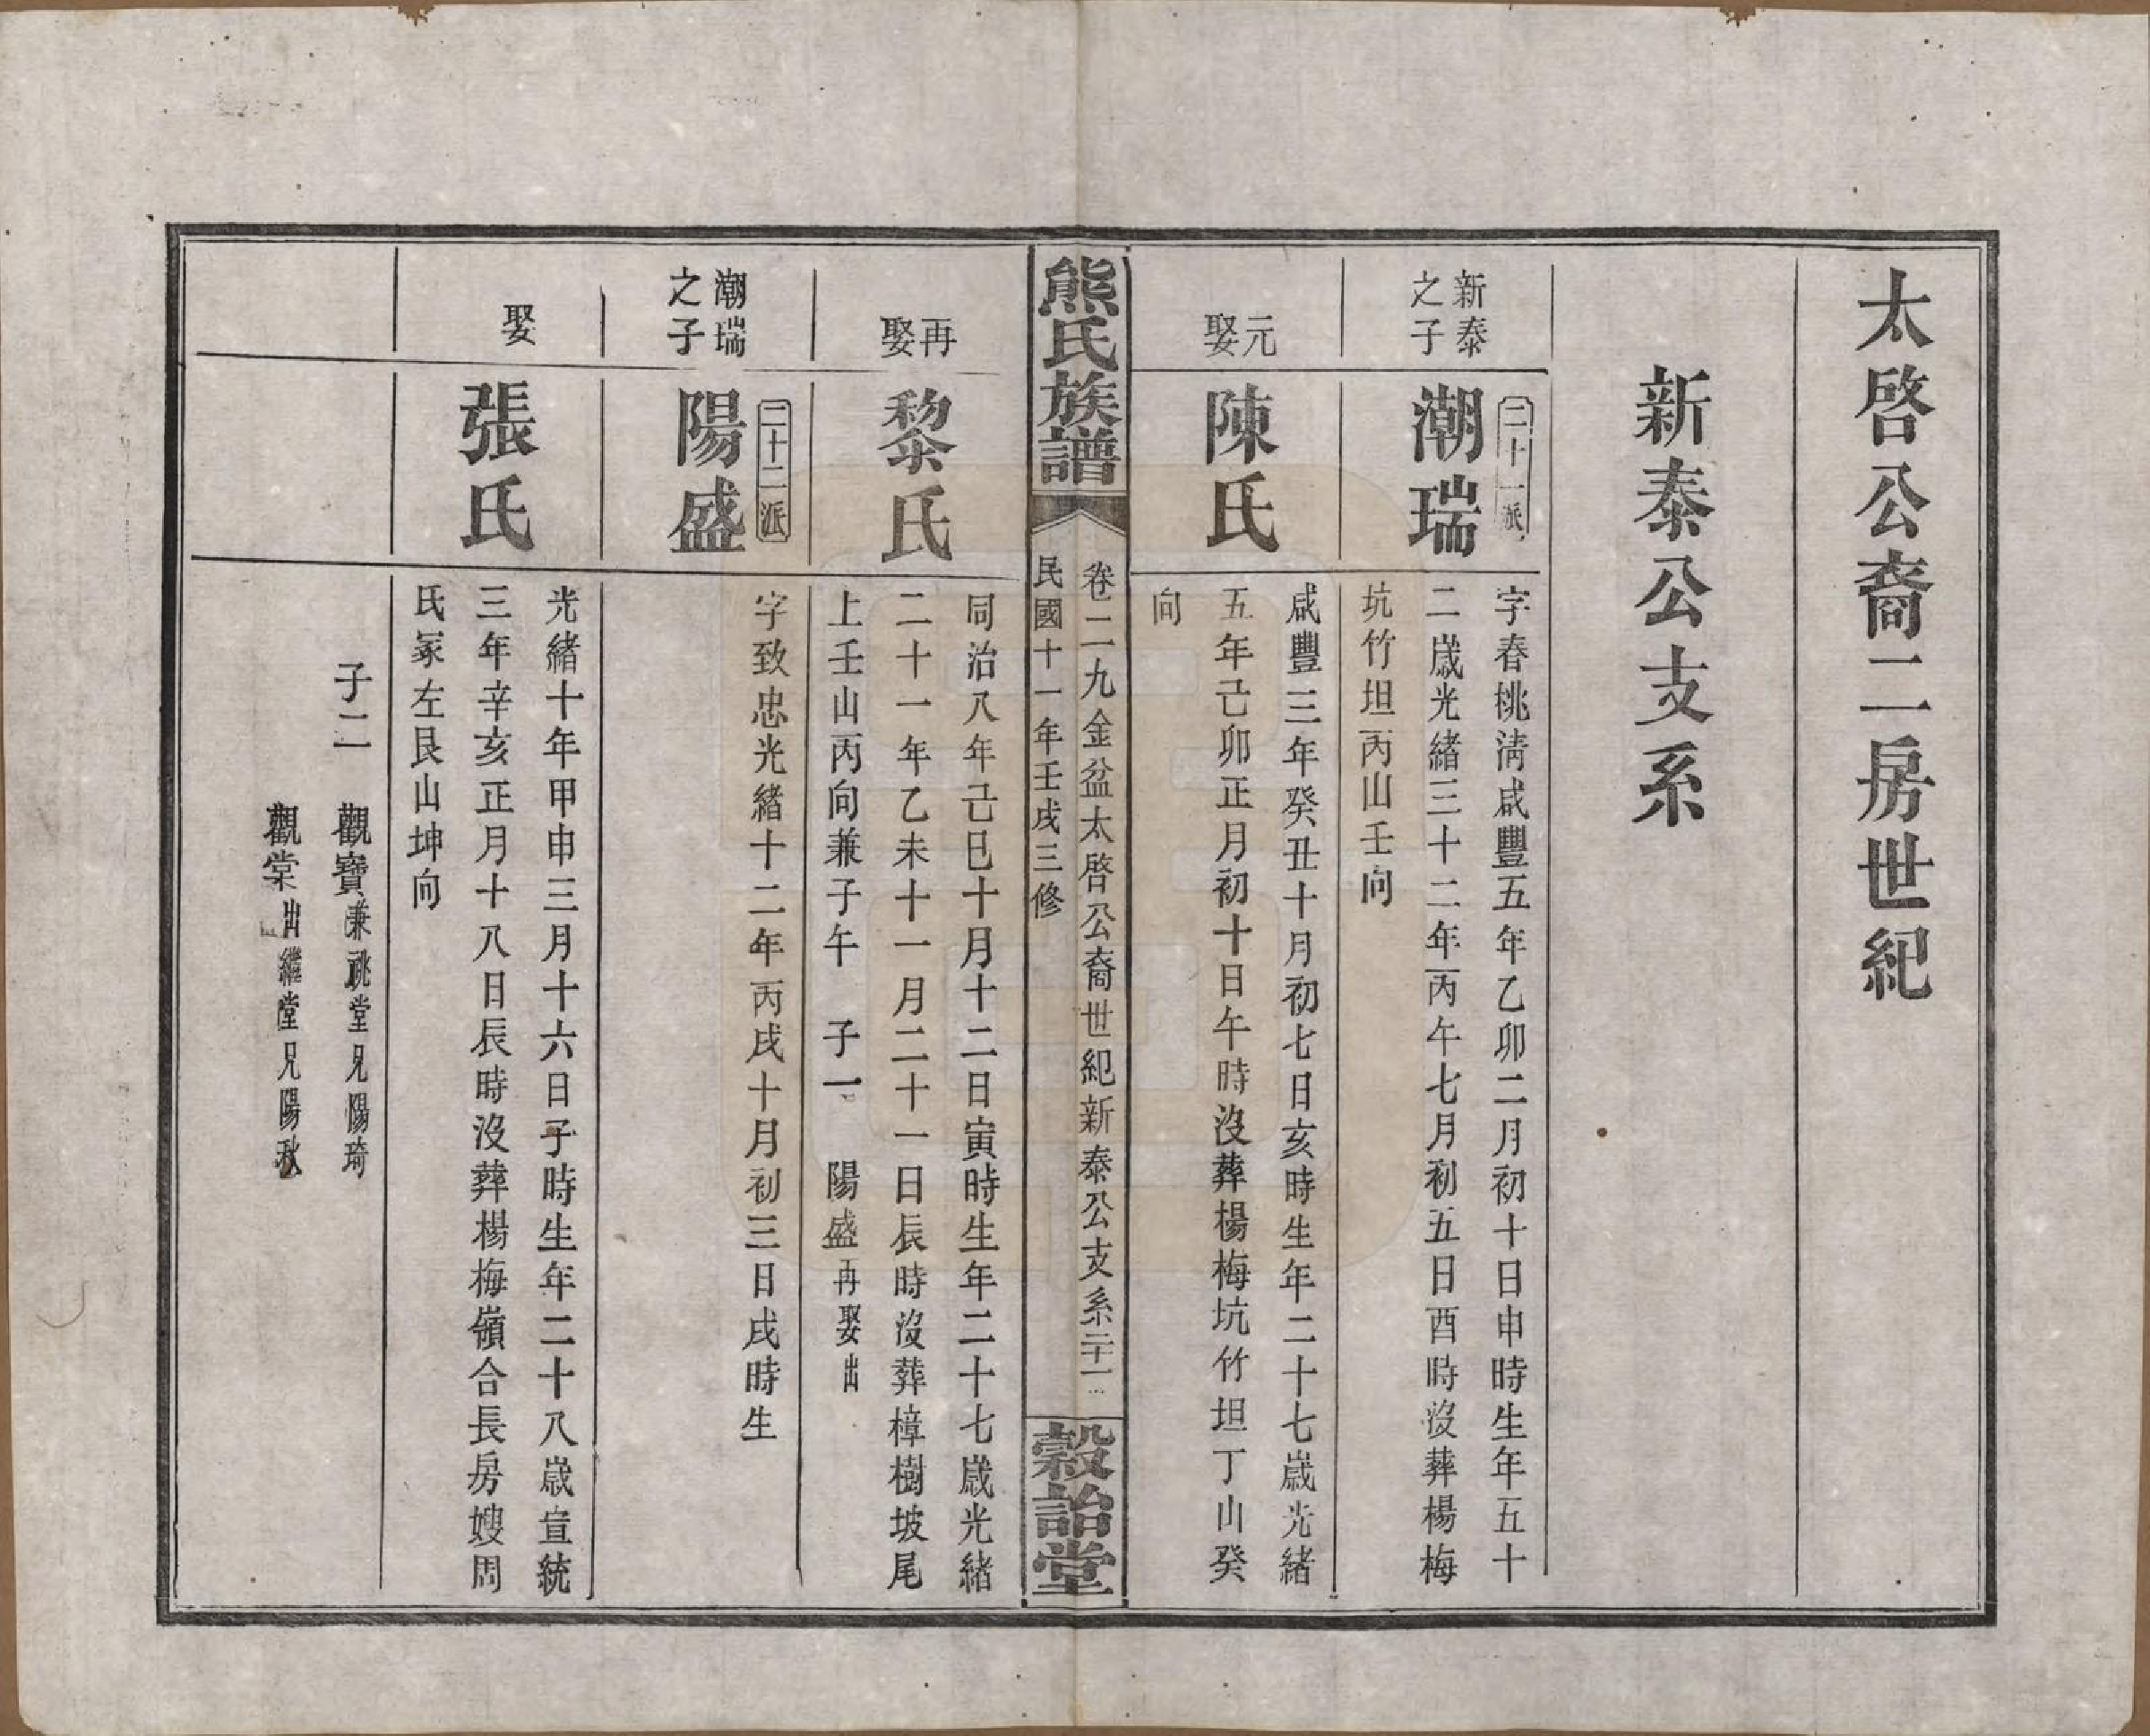 太啓公裔二房世紀
新泰公支系
新泰
之子
潮瑞
二十一派
字春桃淸咸豐五年乙卯二月初十日申時生年五十
二歲光緒三十二年丙午七月初五日酉時沒葬楊梅
坑竹坦丙山壬向
元
娶
陳氏
咸豐三年癸丑十月初七日亥時生年二十七歲光緒
五年己卯正月初十日午時沒葬楊梅坑竹坦丁山癸
向
熊氏族譜
卷二九金盆太啓公裔世紀新泰公支系二十一
民國十一年壬戌三修
穀詒堂
再
娶
黎氏
同治八年己巳十月十二日寅時生年二十七歲光緒
二十一年乙未十一月二十一日辰時沒葬樟樹坡尾
上壬山丙向兼子午　子一　陽盛再娶出
潮瑞
之子
陽盛
二十二派
字致忠光緒十二年丙戌十月初三日戌時生
娶
張氏
光緒十年甲申三月十六日子時生年二十八歲宣統
三年辛亥正月十八日辰時沒葬楊梅嶺合長房嫂周
氏冢左艮山坤向
子二　觀寶兼祧堂兄陽琦
觀棠出繼堂兄陽秋